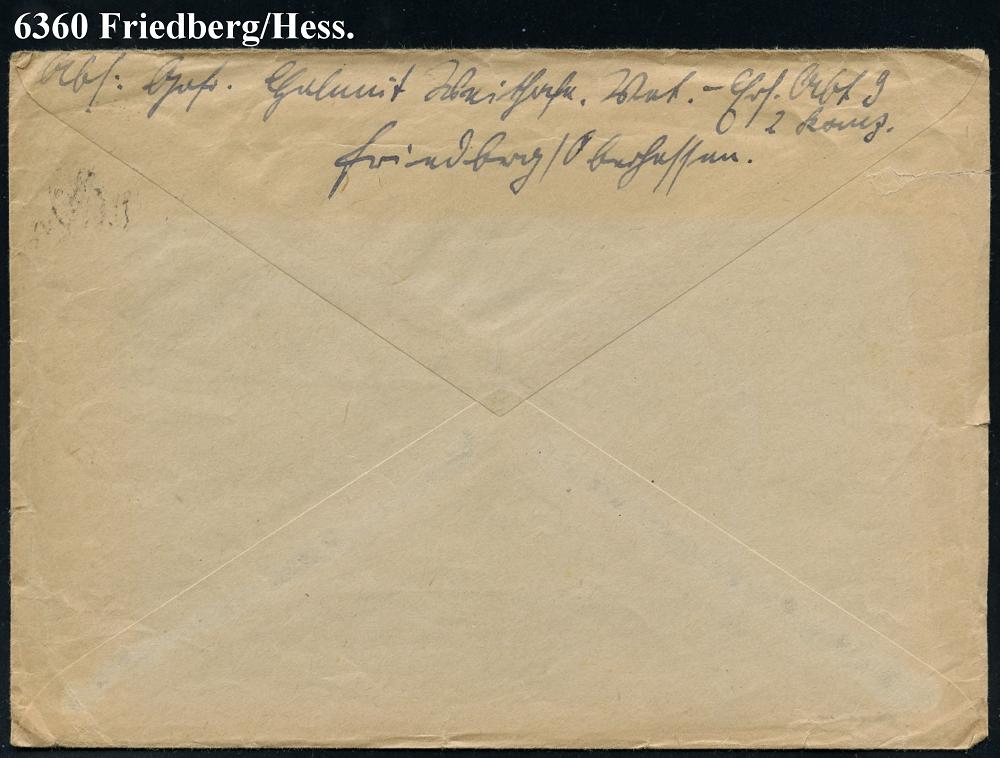 6360 Friedberg/Hess.
Abs: Gefr. Helmut Vet.-Ers. Abt 9
2 Komp.
Friedberg/Oberhessen.